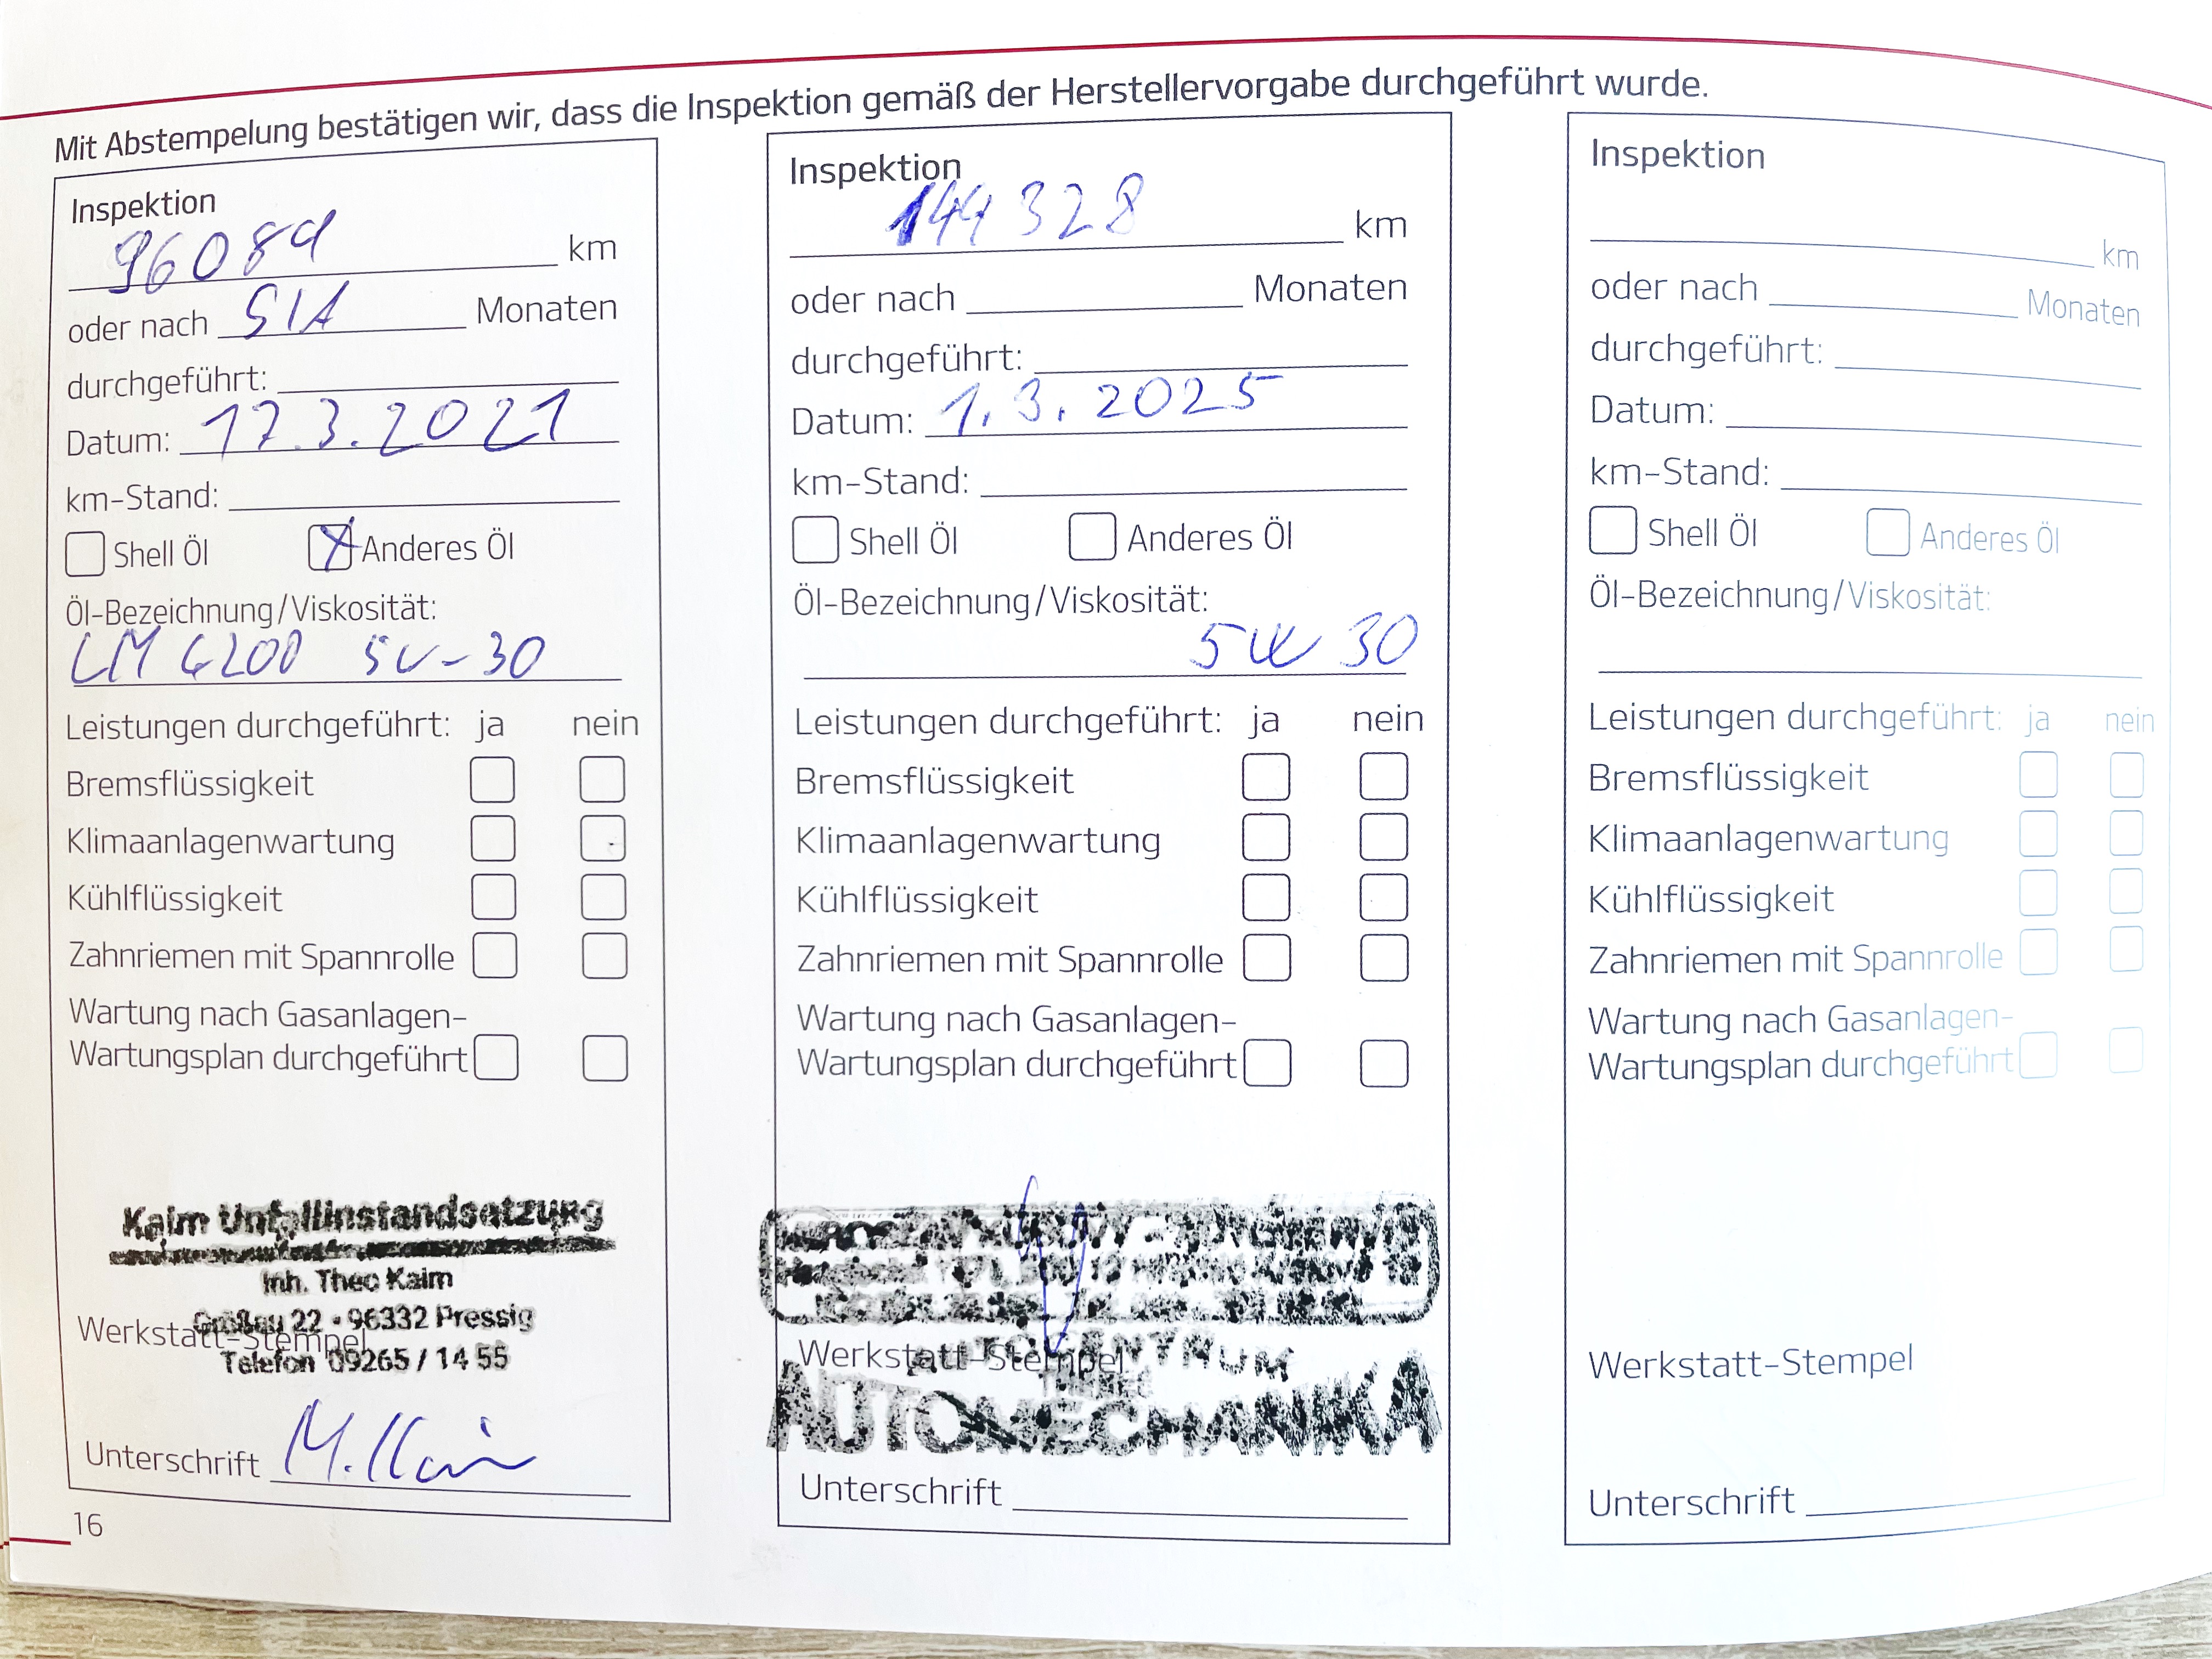 Mit Abstempelung bestätigen wir, dass die Inspektion gemäß der Herstellervorgabe durchgeführt wurde.
Inspektion
96089 km
oder nach SIA Monaten
durchgeführt:
Datum: 17.3.2021
km-Stand:
Shell Öl X Anderes Öl
Öl-Bezeichnung/Viskosität:
LM 4200 5W-30
Leistungen durchgeführt: ja nein
Bremsflüssigkeit
Klimaanlagenwartung
Kühlflüssigkeit
Zahnriemen mit Spannrolle
Wartung nach Gasanlagen-
Wartungsplan durchgeführt
Kaim Unfallinstandsetzung
Inh. Theo Kaim
Größau 22 • 96332 Pressig
Werkstatt-Stempel
Telefon 09265 / 14 55
Unterschrift M. Kaim
16
Inspektion
144 328 km
oder nach Monaten
durchgeführt:
Datum: 1.3.2025
km-Stand:
Shell Öl Anderes Öl
Öl-Bezeichnung/Viskosität:
5W 30
Leistungen durchgeführt: ja nein
Bremsflüssigkeit
Klimaanlagenwartung
Kühlflüssigkeit
Zahnriemen mit Spannrolle
Wartung nach Gasanlagen-
Wartungsplan durchgeführt
Werkstatt-Stempel
AUTOMECHANIKA
Unterschrift
Inspektion
km
oder nach Monaten
durchgeführt:
Datum:
km-Stand:
Shell Öl Anderes Öl
Öl-Bezeichnung/Viskosität:
Leistungen durchgeführt: ja nein
Bremsflüssigkeit
Klimaanlagenwartung
Kühlflüssigkeit
Zahnriemen mit Spannrolle
Wartung nach Gasanlagen-
Wartungsplan durchgeführt
Werkstatt-Stempel
Unterschrift